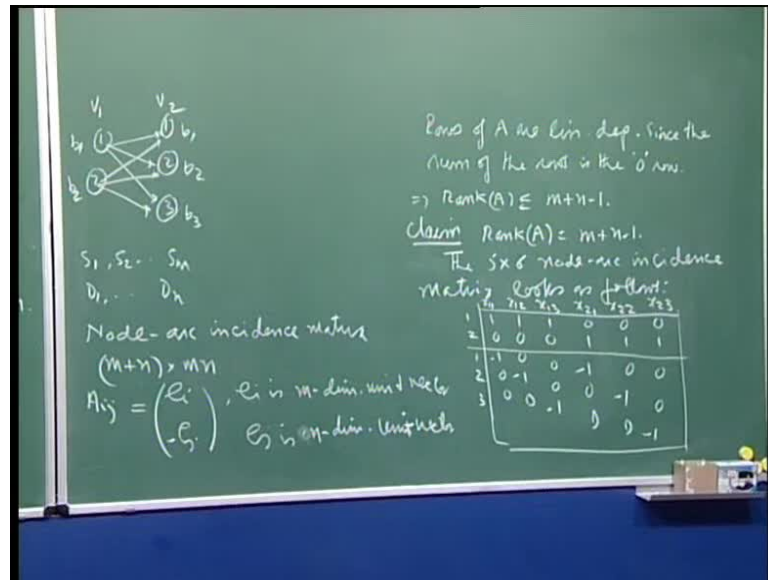 V₁ V₂
b₁ 1 1 b₁
b₂ 2 2 b₂
3 b₃
S₁, S₂ .. Sₘ
D₁, ... Dₙ
Node-arc incidence matrix
(m+n) × mn
Aᵢⱼ = (eᵢ , eᵢ is m-dim. unit vector
-eⱼ) eⱼ is n-dim. unit vector
Rows of A are lin. dep. since the
sum of the rows is the '0' row.
⇒ Rank(A) ≤ m+n-1.
Claim Rank(A) = m+n-1.
The 5×6 node-arc incidence
matrix looks as follows:
x₁₁ x₁₂ x₁₃ x₂₁ x₂₂ x₂₃
1 1 1 1 0 0 0
2 0 0 0 1 1 1
1 -1 0 0 -1 0 0
2 0 -1 0 0 -1 0
3 0 0 -1 0 0 -1